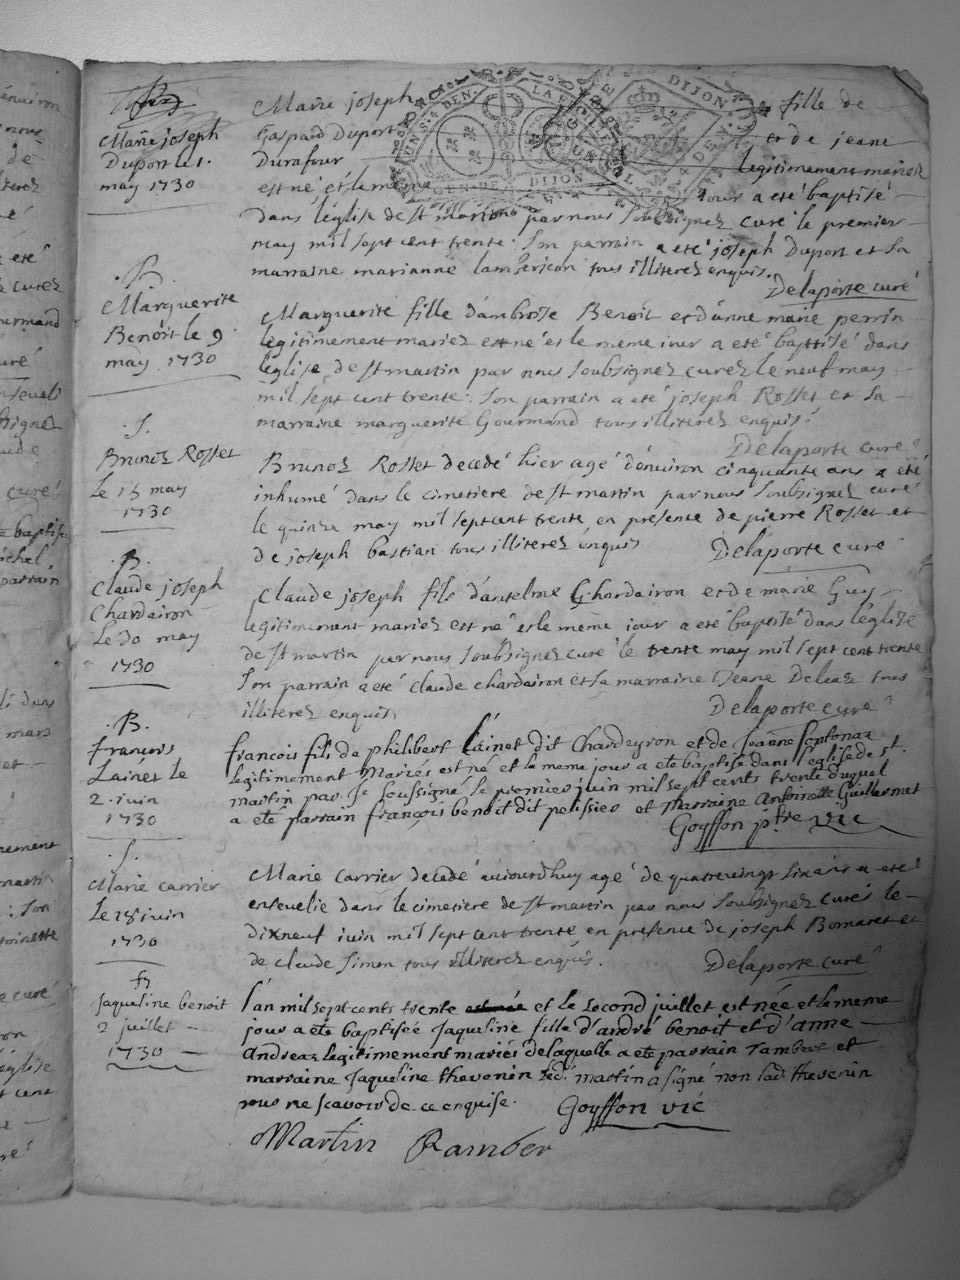 .B.
Marie joseph
Duport le 1.
may 1730
Marie joseph fille de
Gaspard Duport et de jeane
Durafour legitimement mariez
est né et le meme jour a eté baptisé
dans l'église de st martin par nous soubsignez curé le premier
may mil sept cent trente. son parrain a eté joseph Duport et sa
marraine marianne tous illiterez enquis.
Delaporte curé
DIJON
.B.
Marguerite
Benoit le 9
may 1730
Marguerite fille d'ambroise Benoit et d'anne marie perrin
legitimement mariez est né et le meme iour a eté baptisé dans
l'eglise de st martin par nous soubsignez curez le neuf may
mil sept cent trente. son parrain a eté joseph Rosset et sa
marraine marguerite Gourmand tous illiterez enquis.
Delaporte curé
.S.
Brunoz Rosset
le 15 may
1730
Brunoz Rosset decedé hier agé d'environ cinquante ans a eté
inhumé dans le cimetiere de st martin par nous soubsignez curé
le quinze may mil sept cent trente en presence de pierre Rosset et
de joseph bastian tous illiterez enquis
Delaporte curé
.B.
Claude joseph
Chardairon
le 30 may
1730
Claude joseph fils d'antelme Chardairon et de marie Guy
legitimement mariez est né et le meme iour a eté baptisé dans l'eglise
de st martin par nous soubsignez curé le trente may mil sept cent trente
son parrain a eté claude chardairon et sa marraine jeane tous
illiterez enquis
Delaporte curé
.B.
françois
Lainet le
2 iuin
1730
françois fils de philibert Lainet dit Chardeyron et de Jeanne fontanaz
legitimement Mariés est né et le meme jour a ete baptise dans l'eglise de st.
martin par Je soussigné le premier juin mil sept cents trente duquel
a ete parrain françois benoit dit pelissier et Marraine Antoinette Guillermet
Goyffon ptre vic
.S.
Marie carrier
le 18 iuin
1730
Marie Carrier decedé auiourdhuy agé de quattrevingt six ans a eté
ensevelie dans le cimetiere de st martin par nous soubsignez curés le
dixneuf iuin mil sept cent trente en presence de joseph Bornaret et
de claude Simon tous illiterez enquis.
Delaporte curé
B
Jaqueline benoit
2 juillet
1730
l'an mil sept cents trente et le second juillet est née et le meme
jour a ete baptisée Jaqueline fille d'andré benoit et d'anne
Andreaz legitimement mariés de laquelle a ete parrain rambert et
marraine Jaqueline thevenin led. martin a signé non lad. thevenin
pour ne scavoir de ce enquise. Goyffon vic
Martin Ramber